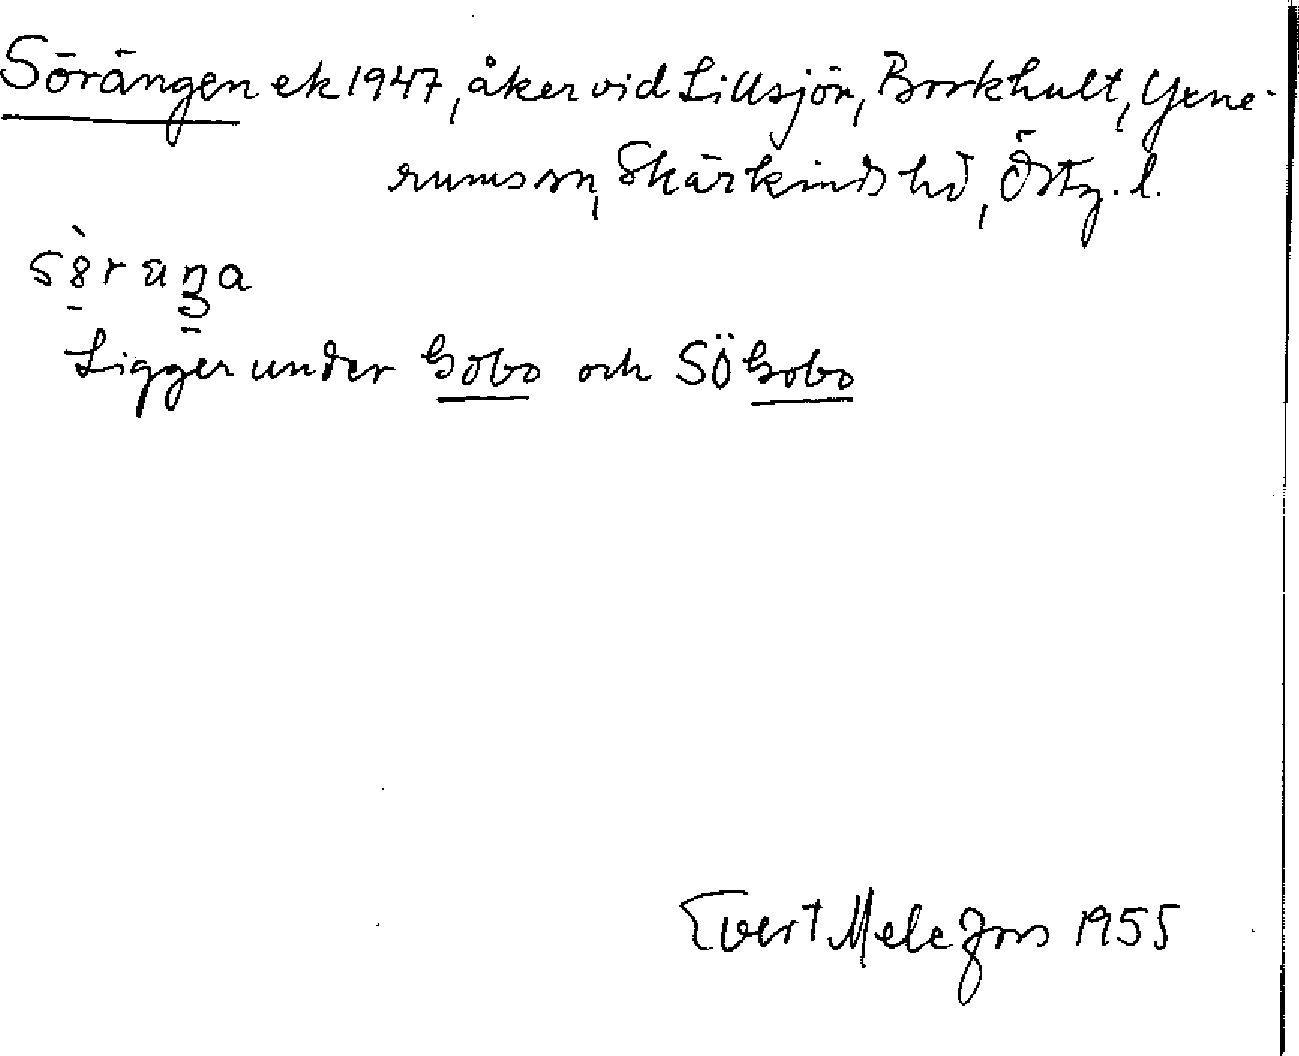 Sörängen ek 1947, åker vid Lillsjön, Borkhult, Yxne-
rums sn, Skärkinds hd, Östg. l.
Ligger under Gobo och SÖ Gobo
Evert Melefors 1955